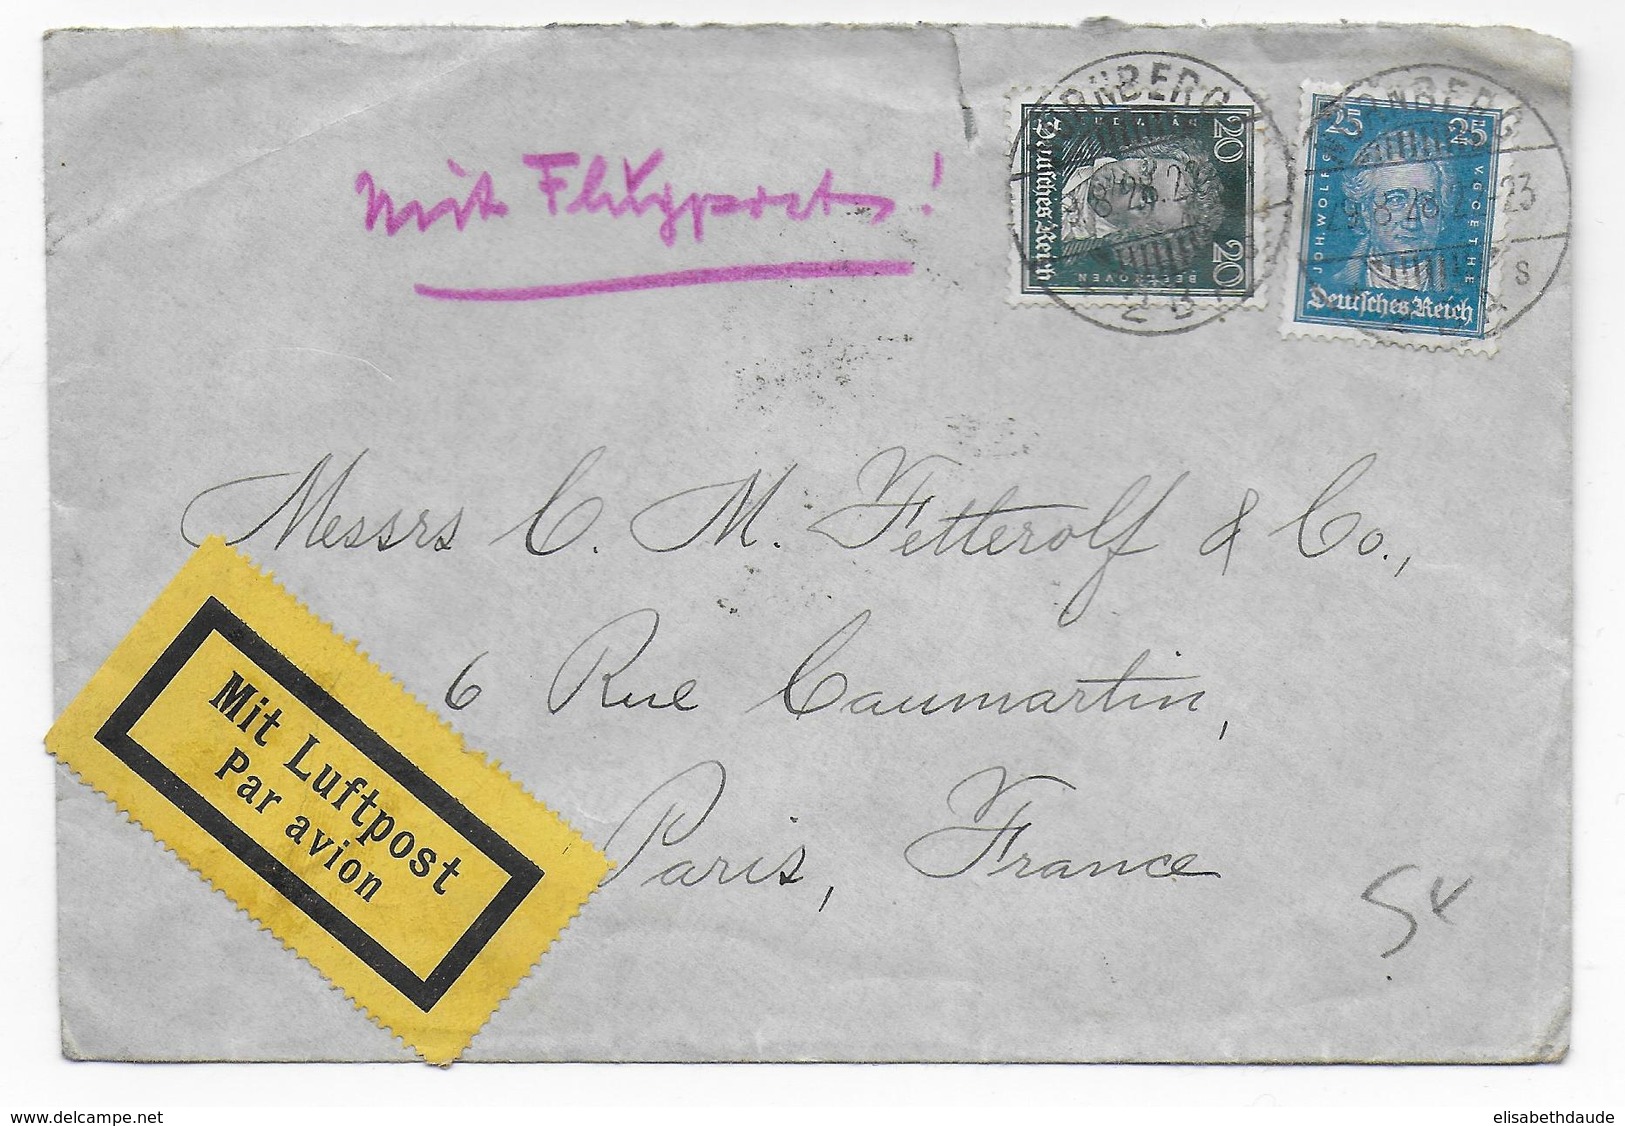 Mit Flugpost!
20 20
Deutsches Reich
BEETHOVEN
25 25
JOH. WOLFG. V. GOETHE
Deutsches Reich
NÜRNBERG
29.8.28.
NÜRNBERG
29.8.28. -23
S
Messrs C. M. Fetterolf & Co.,
6 Rue Caumartin,
Paris, France
Mit Luftpost
Par avion
www.delcampe.net
elisabethdaude